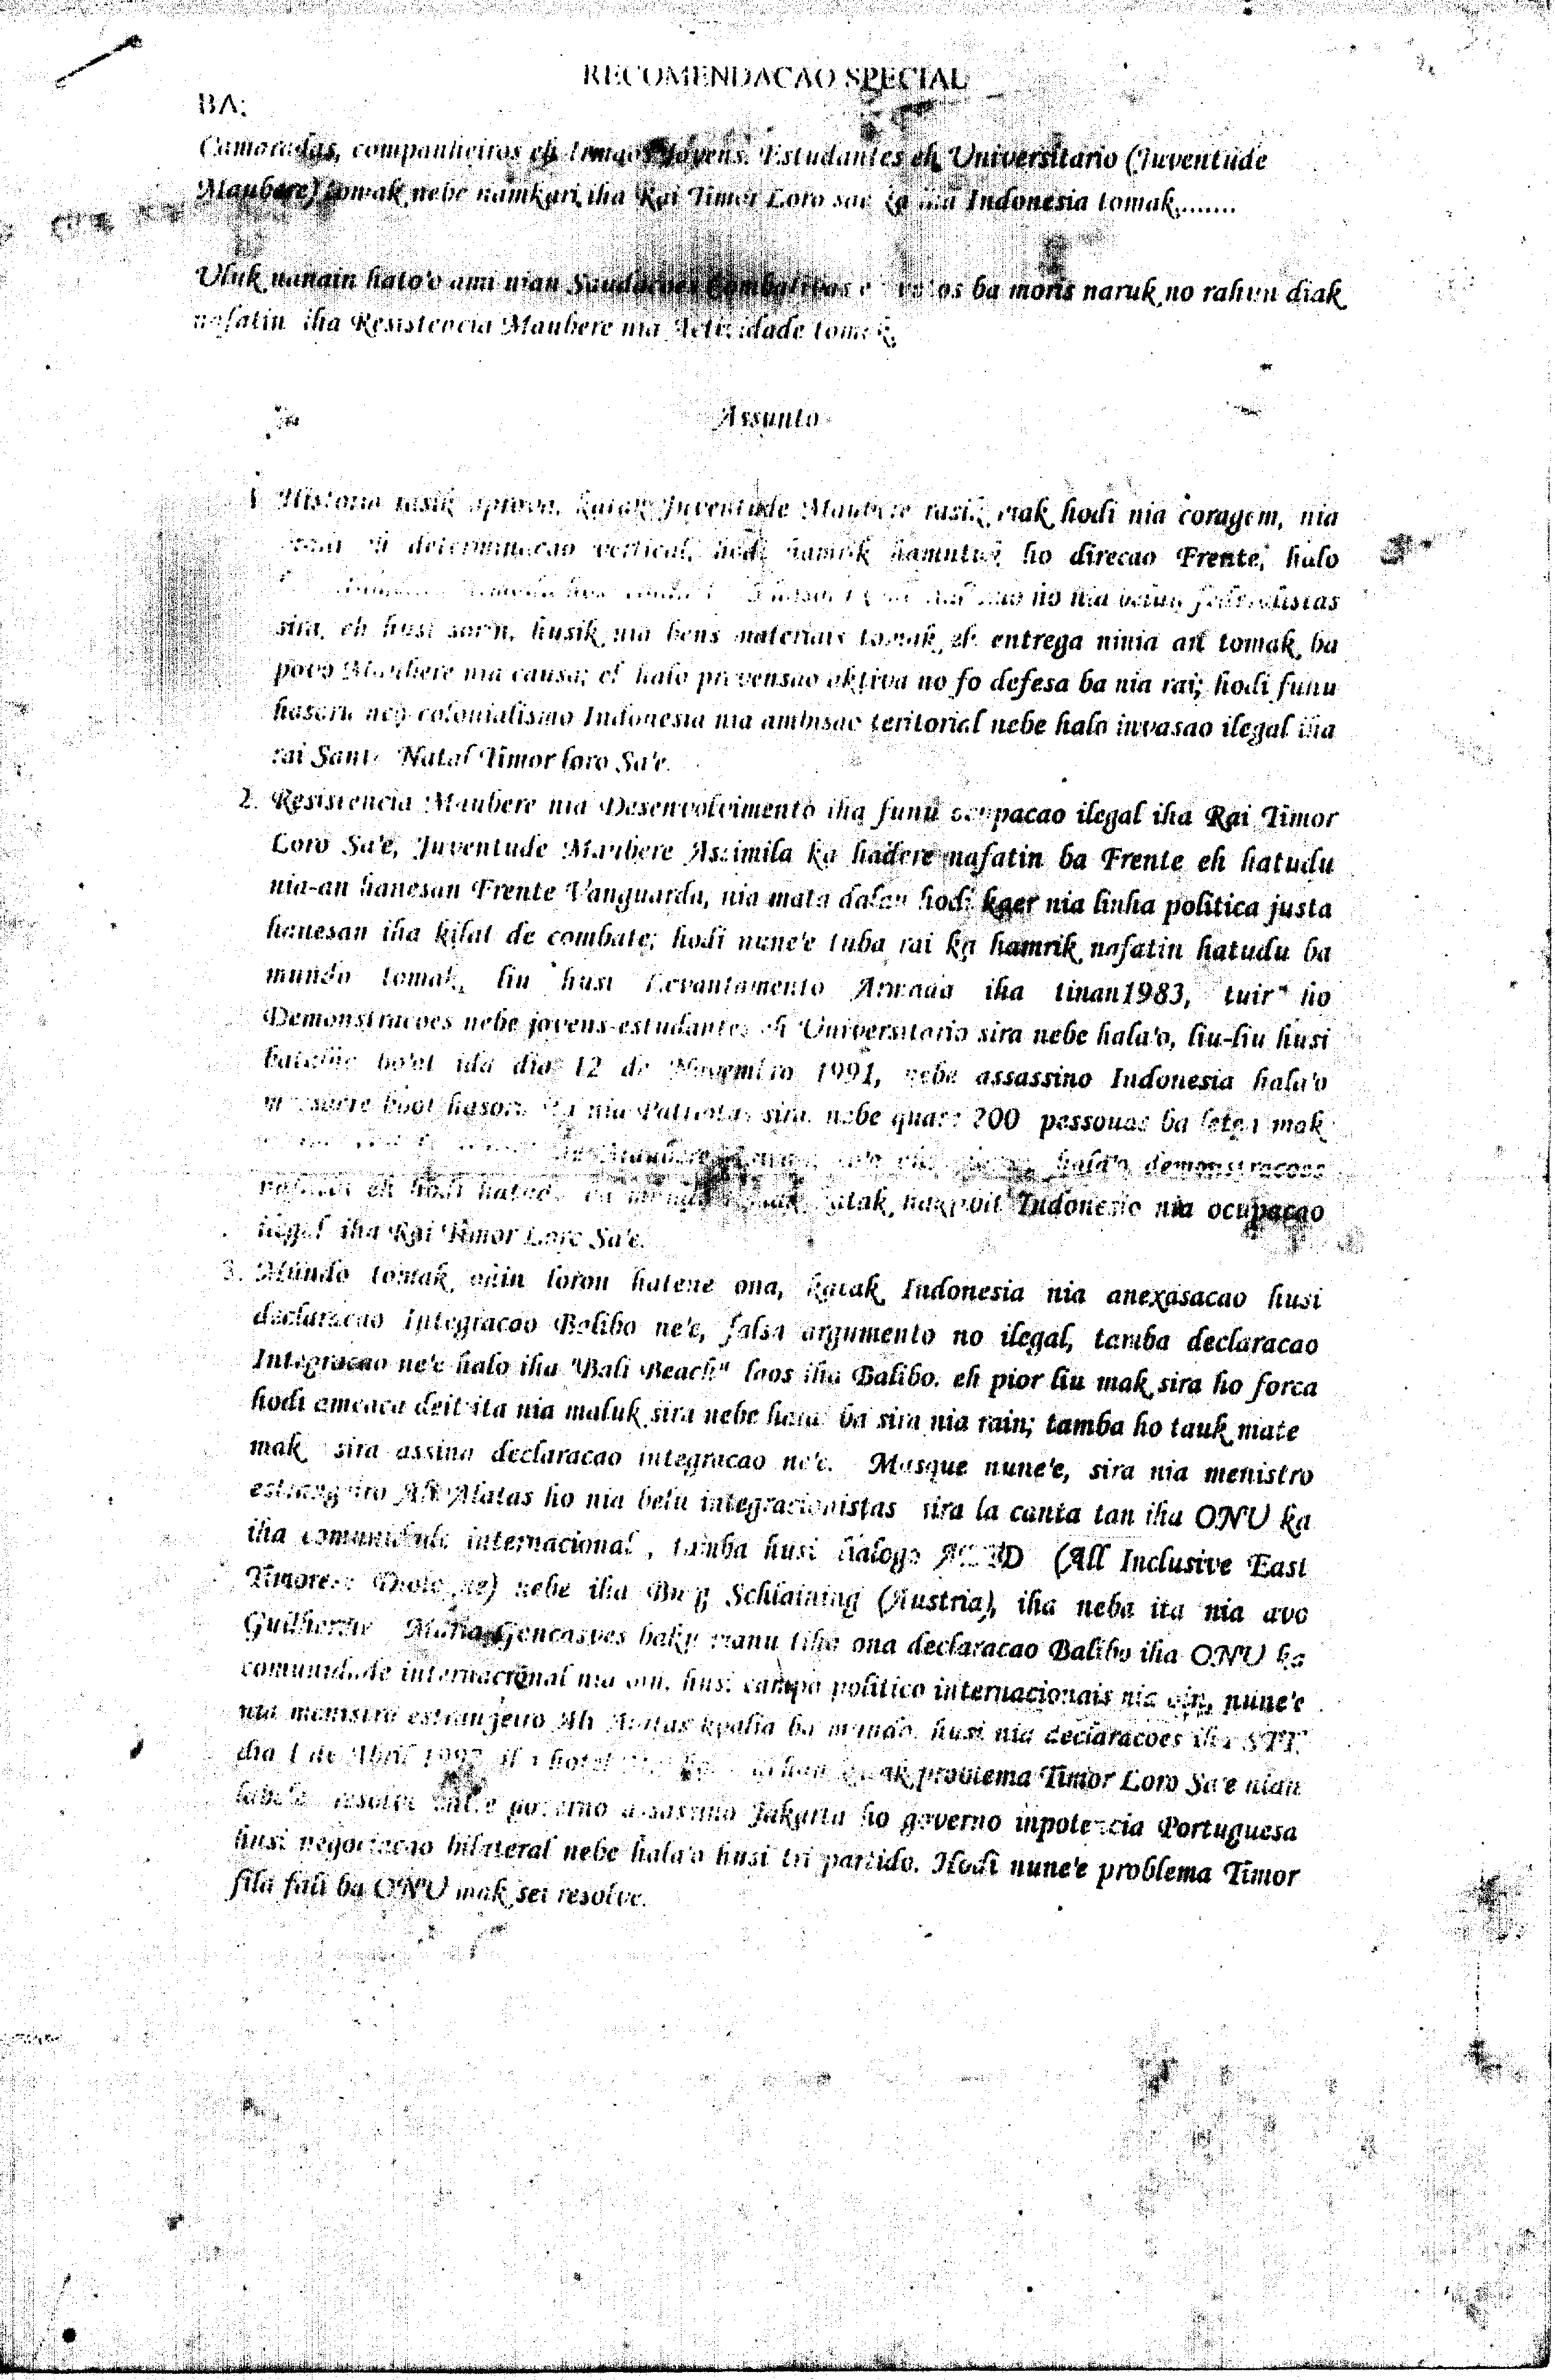 RECOMENDACAO SPECIAL
BA:
Camaradas, companheiros eh Irmaos Jovens, Estudantes eh Universitario (Juventude
Maubere) tomak nebe namkari iha Rai Timor Loro sae ka iha Indonesia tomak.......
Uluk nanain hato'o ami nian Saudacoes Combativas e votos ba moris naruk no rahun diak
nafatin iha Resistencia Maubere nia Actividade tomak.
Assunto
1. Historia rasik aprova, katak Juventude Maubere rasik mak hodi nia coragem, nia
eh determinacao vertical, hodi hamrik hamutuk ho direcao Frente, halo
no nia belun federalistas
sira, eh husi sorin, husik nia bens materiais tomak eh entrega ninia an tomak ba
povo Maubere nia causa; eh halo prevensao aktiva no fo defesa ba nia rai; hodi funu
hasoru neo-colonialismo Indonesia nia ambisao teritorial nebe halo invasao ilegal iha
rai Santa Natal Timor loro Sa'e.
2. Resistencia Maubere nia Desenvolvimento iha funu ocupacao ilegal iha Rai Timor
Loro Sa'e, Juventude Maubere Assimila ka hadere nafatin ba Frente eh hatudu
nia-an hanesan Frente Vanguarda, nia mata dalan hodi kaer nia linha politica justa
hanesan iha kilat de combate; hodi nune'e tuba rai ka hamrik nafatin hatudu ba
mundo tomak, liu husi Levantamento Armada iha tinan1983, tuir ho
Demonstracoes nebe jovens-estudantes eh Universitario sira nebe hala'o, liu-liu husi
batalha bo'ot ida dia 12 de Novembro 1991, nebe assassino Indonesia hala'o
massacre boot hasoru ita nia Patriotas sira, nebe quase 200 pessouas ba leten mak
hala'o demonstracoes
nafatin eh hodi hatudu ba mundo tomak katak Indonesio nia ocupacao
ilegal iha Rai Timor Loro Sa'e.
3. Mundo tomak ohin loron hatene ona, katak Indonesia nia anexasacao husi
declaracao Integracao Balibo ne'e, falsa argumento no ilegal, tamba declaracao
Integracao ne'e halo iha "Bali Beach" laos iha Balibo. eh pior liu mak sira ho forca
hodi ameaca deit ita nia maluk sira nebe halai ba sira nia rain; tamba ho tauk mate
mak sira assina declaracao integracao ne'e. Masque nune'e, sira nia menistro
estrangeiro Ali Alatas ho nia belu integracionistas sira la canta tan iha ONU ka
iha comunidade internacional, tamba husi dialogo AIETD (All Inclusive East
Timorese Dialogue) nebe iha Burg Schlaining (Austria), iha neba ita nia avo
Guilherme Maria Goncasves baku manu tiha ona declaracao Balibo iha ONU ka
comunidade internacional nia oin. husi campo politico internacionais nia oin, nune'e
nia menistro estranjeiro Ali Alatas koalia ba mundo, husi nia declaracoes iha STT.
dia 1 de Abril iha hotel katak problema Timor Loro Sa'e nian
labele resolve entre governo assasino Jakarta ho governo inpotencia Portuguesa
husi negociacao bilateral nebe hala'o husi tri partido. Hodi nune'e problema Timor
fila fali ba ONU mak sei resolve.